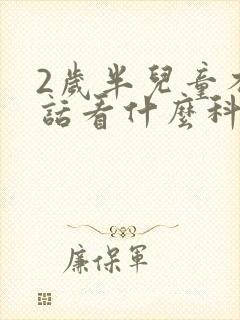 2歲半兒童不
話看什麼科
廉保軍